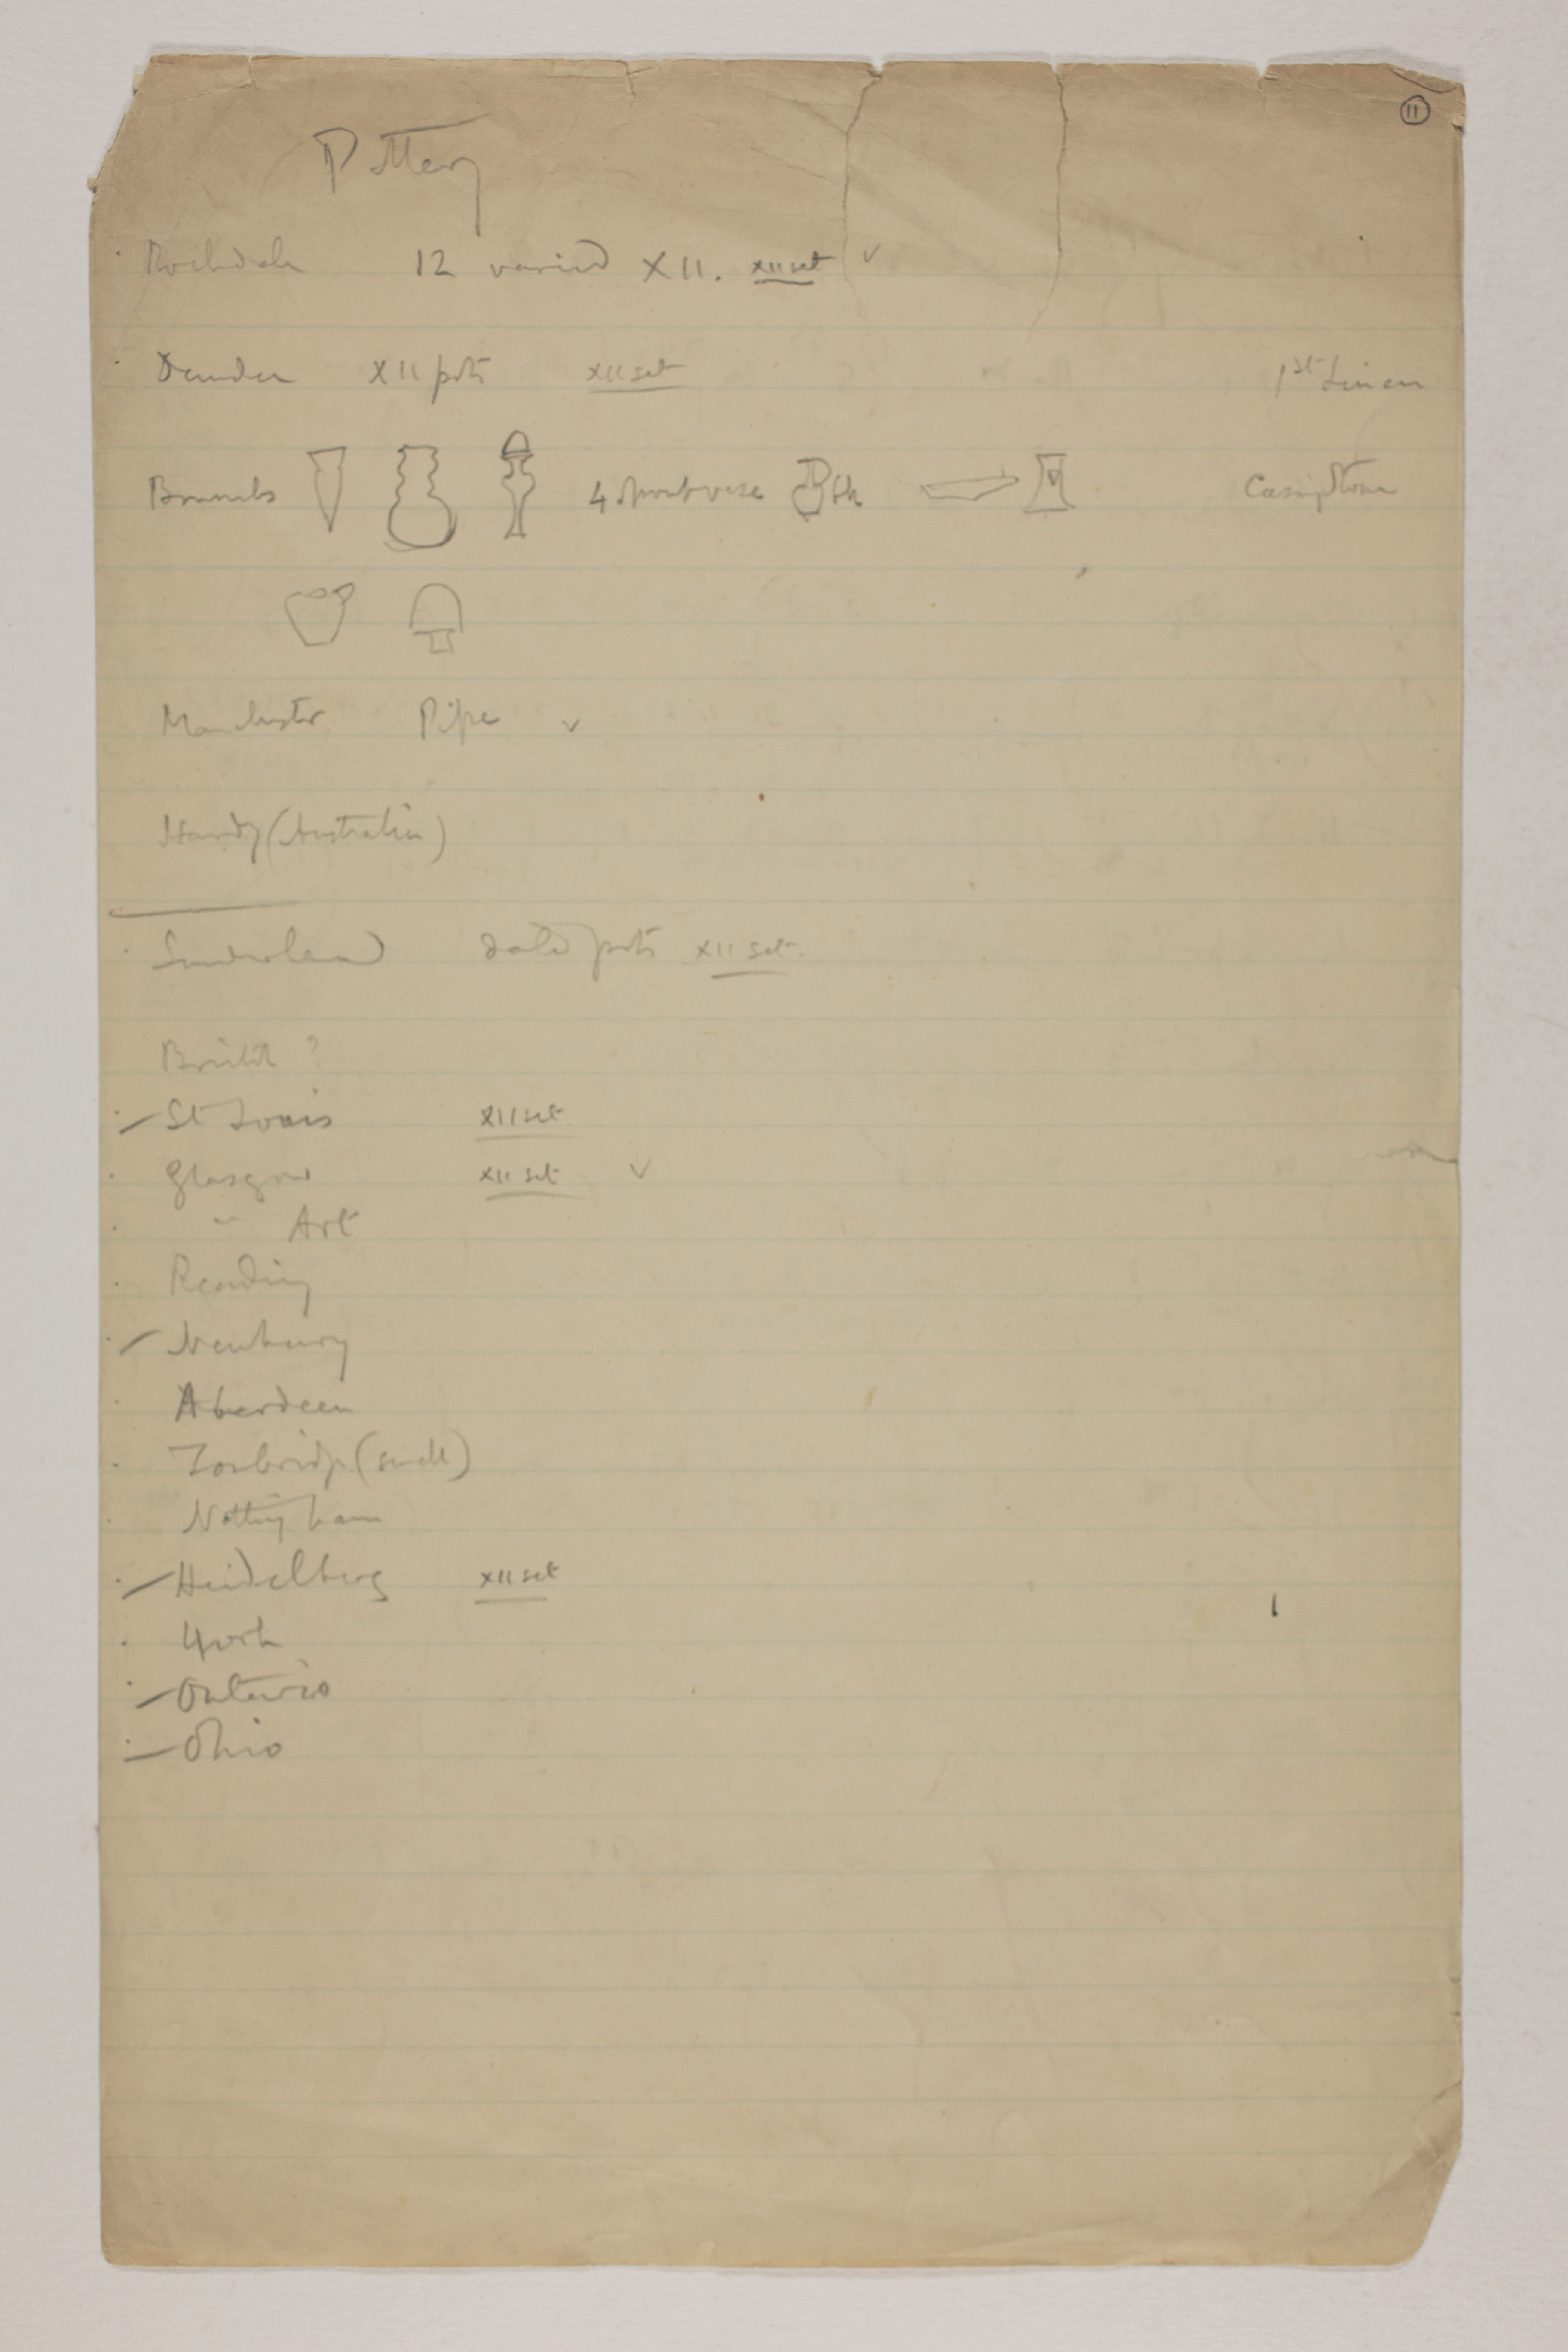 11
Pottery
Rochdale 12 varied XII. XII set ✓
Dundee XII pots XII set 1st Linen
Brussels 4 spout vase Casing Stone
Manchester Pipe ✓
Hardy (Australia)
Sunderland dated pots XII set.
?
St Louis XII set
Glasgow XII set ✓
" Art
Reading
Newbury
Aberdeen
Tonbridge (small)
Nottingham
Heidelberg XII set
York
Ontario
Ohio